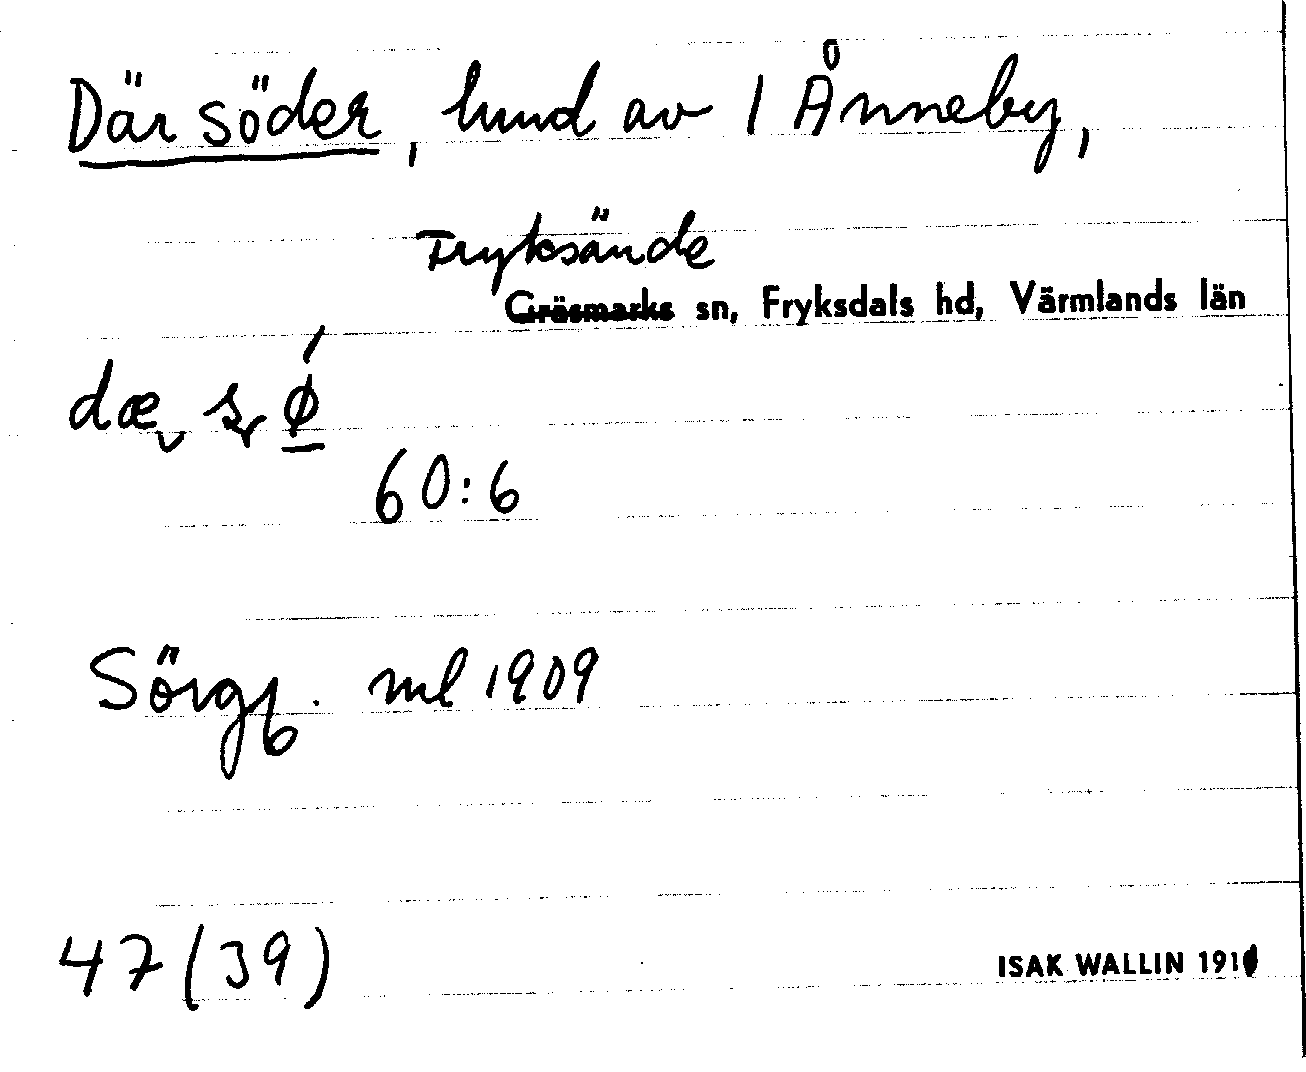 Där söder, hmd av 1 Ånneby,
Fryksände
Gräsmarks sn, Fryksdals hd, Värmlands län
dæ
60:6
Sörgb. ml 1909
47 (39)
ISAK WALLIN 191